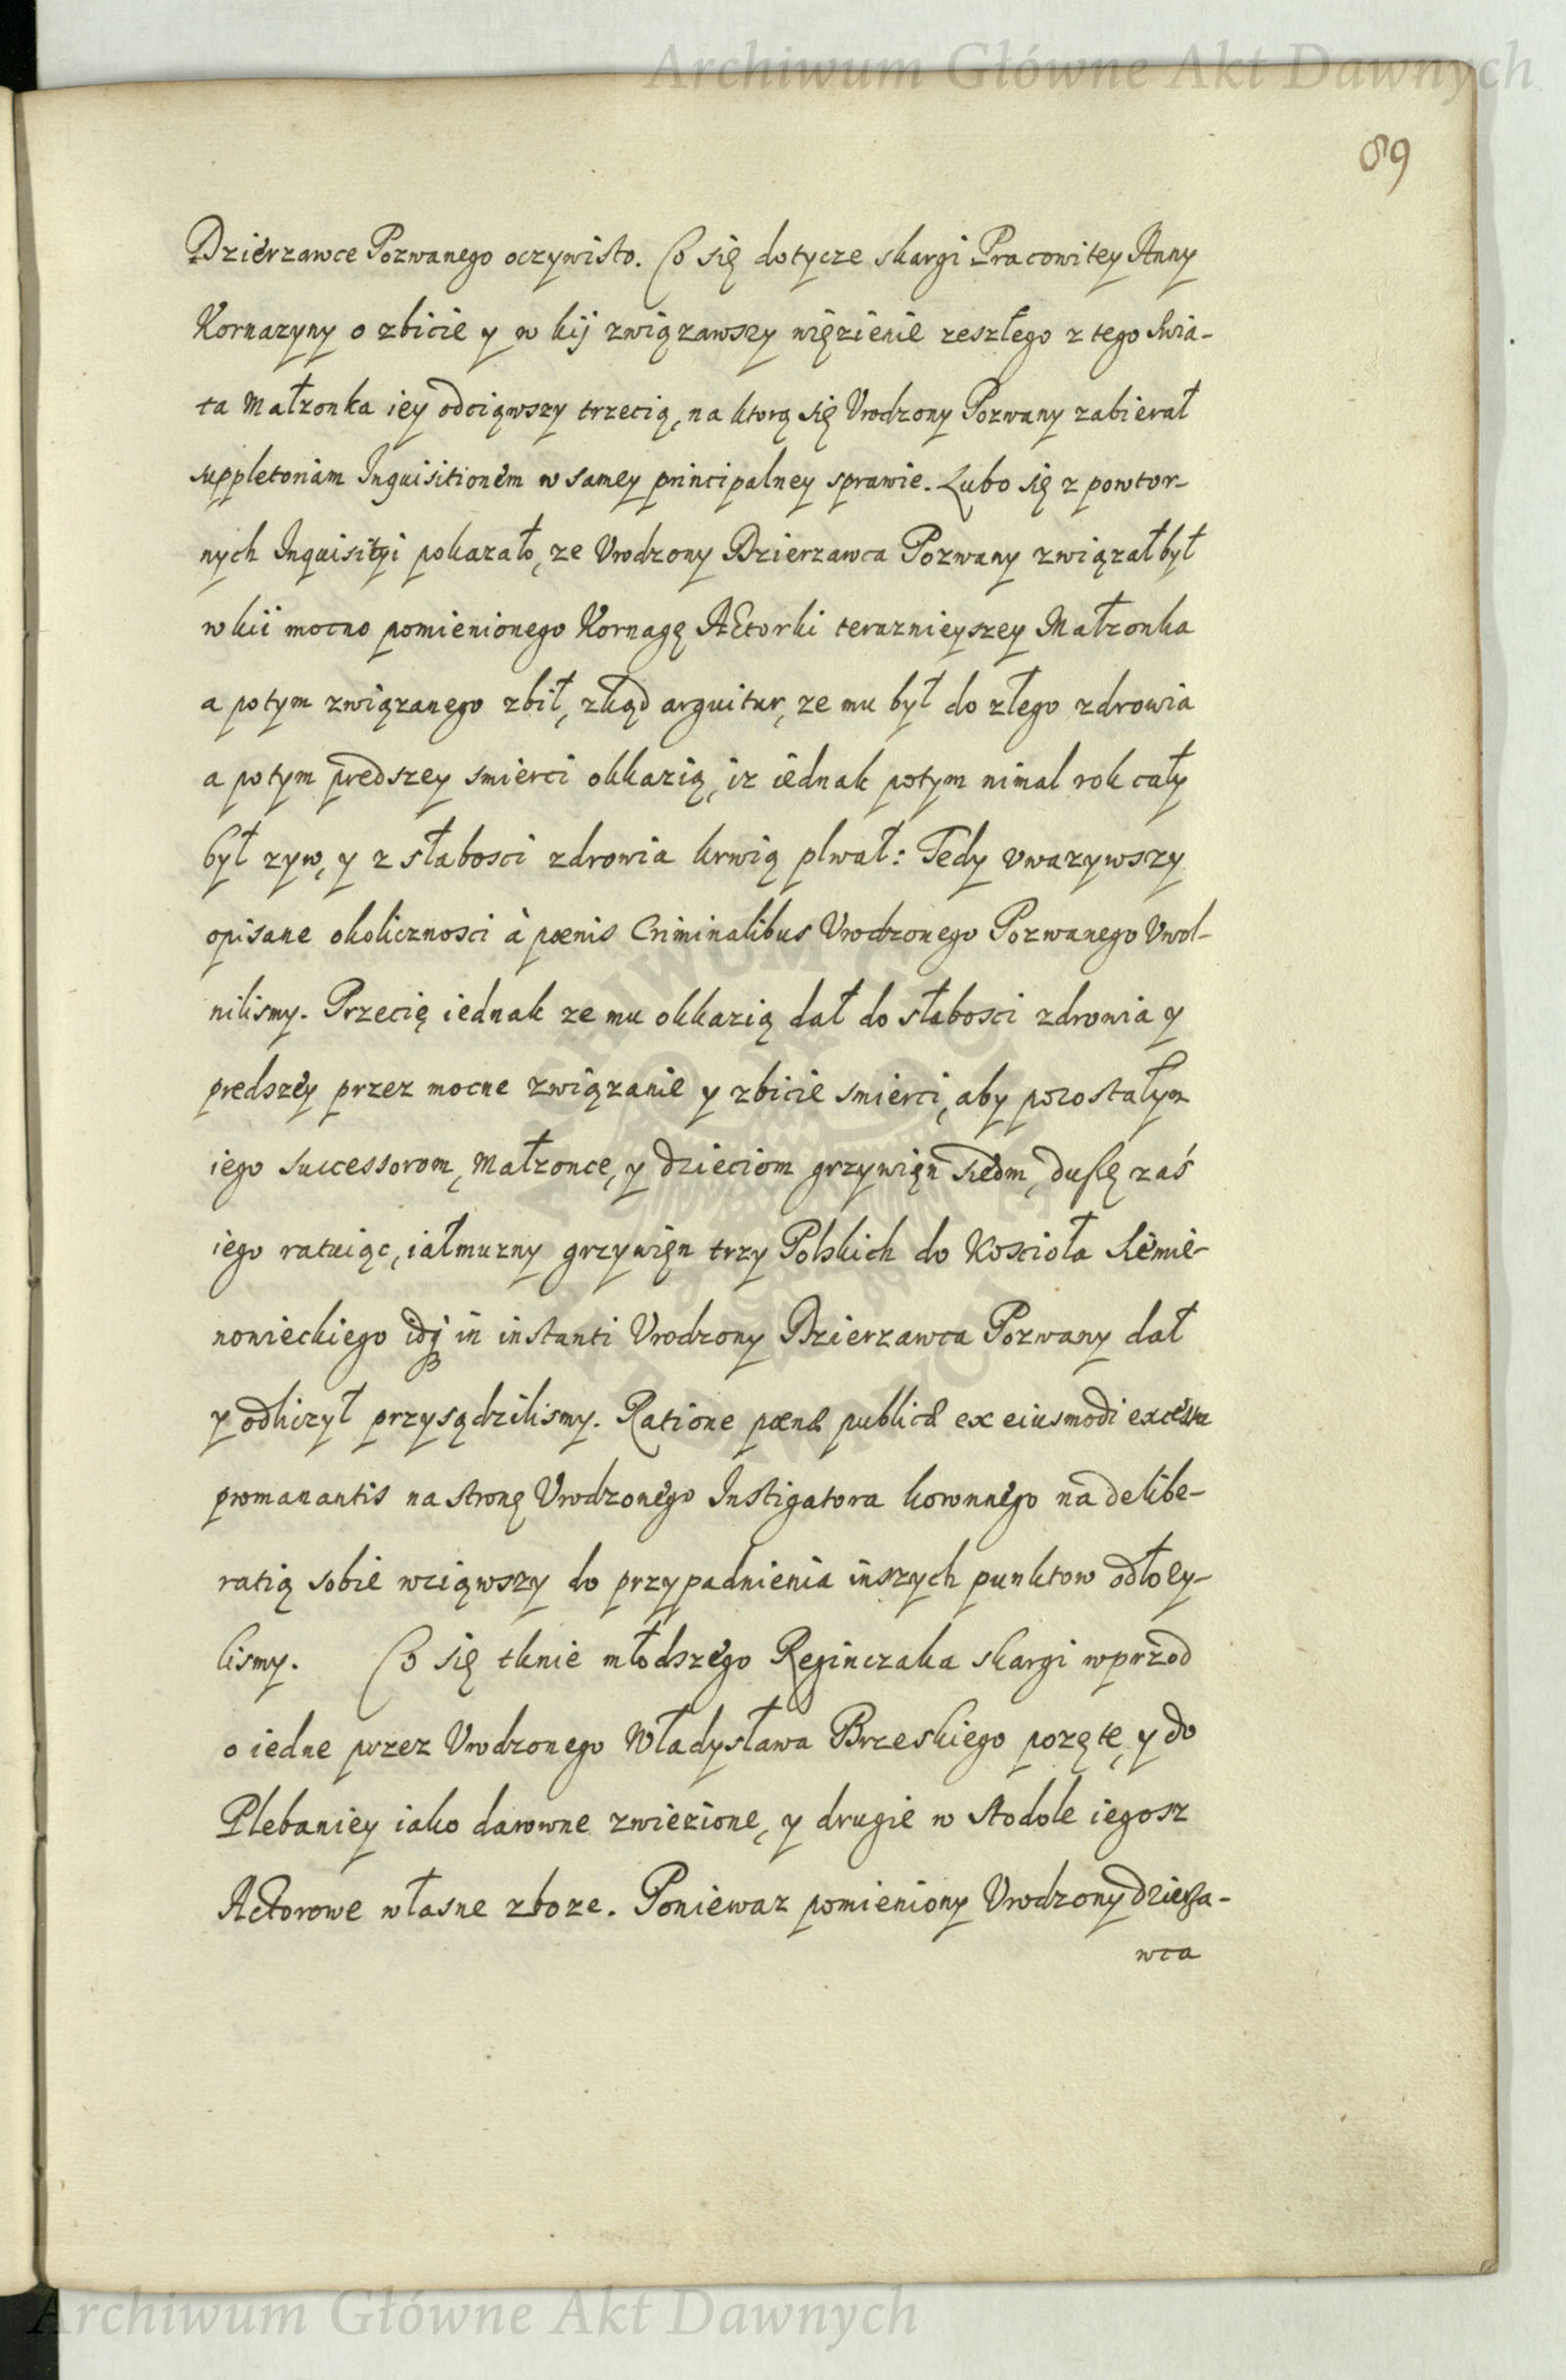 Archiwum Główne Akt Dawnych
89
Dzierzawce Pozwanego oczywisto. Co się dotycze skargi Pracowitey Anny
Kornazyny o zbicie y w kij związawszy więzienie zeszłego z tego swia-
ta Małzonka iey odciąwszy trzecią, na ktorą się Vrodzony Pozwany zabierał
suppletoriam Inquisitionem w samey principalney sprawie. Lubo się z powtor-
nych Inquisityi pokazało, ze Vrodzony Dzierzawca Pozwany związał był
w kii mocno pomienionego Kornagę Actorki teraznieyszey Małzonka
a potym związanego zbił, zkąd arguitur, ze mu był do złego zdrowia
a potym prędszey smierci okkazią, iz iednak potym nimal rok cały
był zyw, y z słabosci zdrowia krwią plwał: Tedy vwazywszy
opisane okolicznosci à pœnis Criminalibus Vrodzonego Pozwanego Vwol-
nilismy. Przecię iednak ze mu okkazią dał do słabosci zdrowia y
predszey przez mocne związanie y zbicie smierci, aby pozostałym
iego successorom, Małzonce, y dzieciom grzywięn siedm, duszę zaś
iego ratuiąc, iałmuzny grzywięn trzy Polskich do Koscioła Siemie-
nowieckiego idq in instanti Vrodzony Dzierzawca Pozwany dał
y odliczył przysądzilismy. Ratione pœnæ publicæ ex eiusmodi excessu
promanantis na stronę Vrodzonego Instigatora koronnego na delibe-
ratią sobie wziąwszy do przypadnienia inszych punktow odłozy-
lismy. Co się tknie młodszego Reginczaka skargi wprzod
o iedne przez Vrodzonego Władysława Brzeskiego pozęte, y do
Plebaniey iako darowne zwiezione, y drugie w stodole iegosz
Actorowe własne zboze. Poniewaz pomieniony Vrodzony dzierza-
wca
Archiwum Główne Akt Dawnych